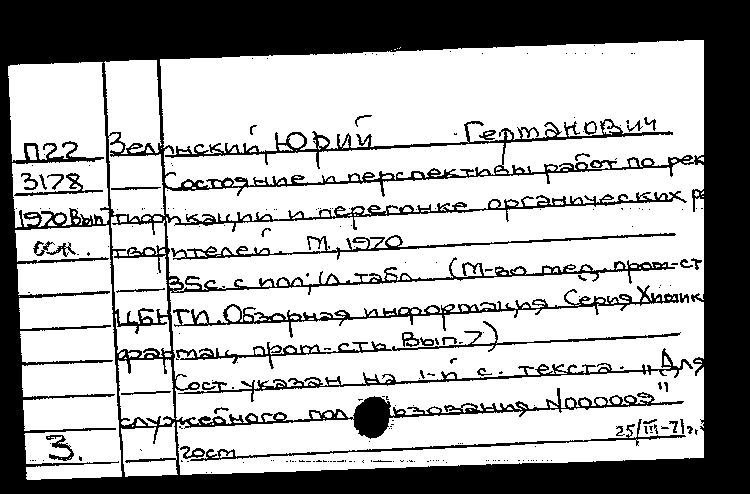 П22 Зелинский, Юрий Германович
3178 Состояние и перспективы работ по рек
1970 Вып7 тификации и перегонке органических ра
осн. творителей. М., 1970
35с. с ил., 1л. табл. (М-во мед. пром-ст
ЦБНТИ. Обзорная информация. Серия Химико
фармац. пром-сть. Вып. 7)
Сост. указан на 1-й с. текста. "Для
служебного пользования. N000009"
25/III-71г.
3. 2осm